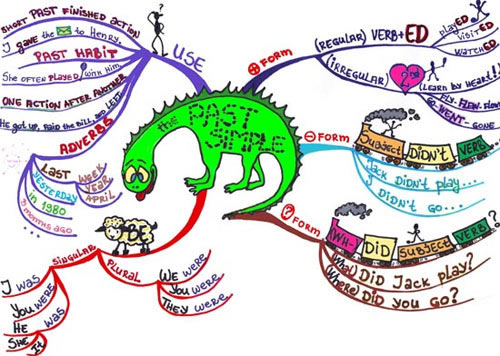 the PAST SIMPLE
USE
SHORT PAST FINISHED ACTION
I gave the to Henry.
PAST HABIT
She OFTEN PLAYED with him
ONE ACTION AFTER ANOTHER
He got up, paid the bill, and left
ADVERBS
LAST
WEEK
YEAR
APRIL
YESTERDAY
in 1980
months ago
...
+ FORM
(REGULAR) VERB+ED
playED
visitED
watchED
(IRREGULAR)
2nd
(LEARN by HEART!)
FLY-FLEW-
GO-WENT-GONE
- FORM
Subject DIDN'T VERB
Jack DIDN'T play...
I DIDN'T GO...
? FORM
(WH-) DID SUBJECT VERB ?
(What) DID Jack play?
(Where) DID you go?
BE
SINGULAR
I WAS
YOU WERE
HE WAS
SHE
It
PLURAL
WE WERE
YOU WERE
THEY WERE